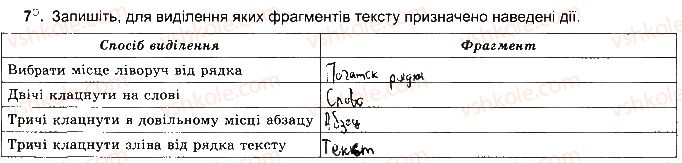 7°. Запишіть, для виділення яких фрагментів тексту призначено наведені дії.
Спосіб виділення Фрагмент
Вибрати місце ліворуч від рядка Початок рядка
Двічі клацнути на слові Слово
Тричі клацнути в довільному місці абзацу Абзац
Тричі клацнути зліва від рядка тексту Текст